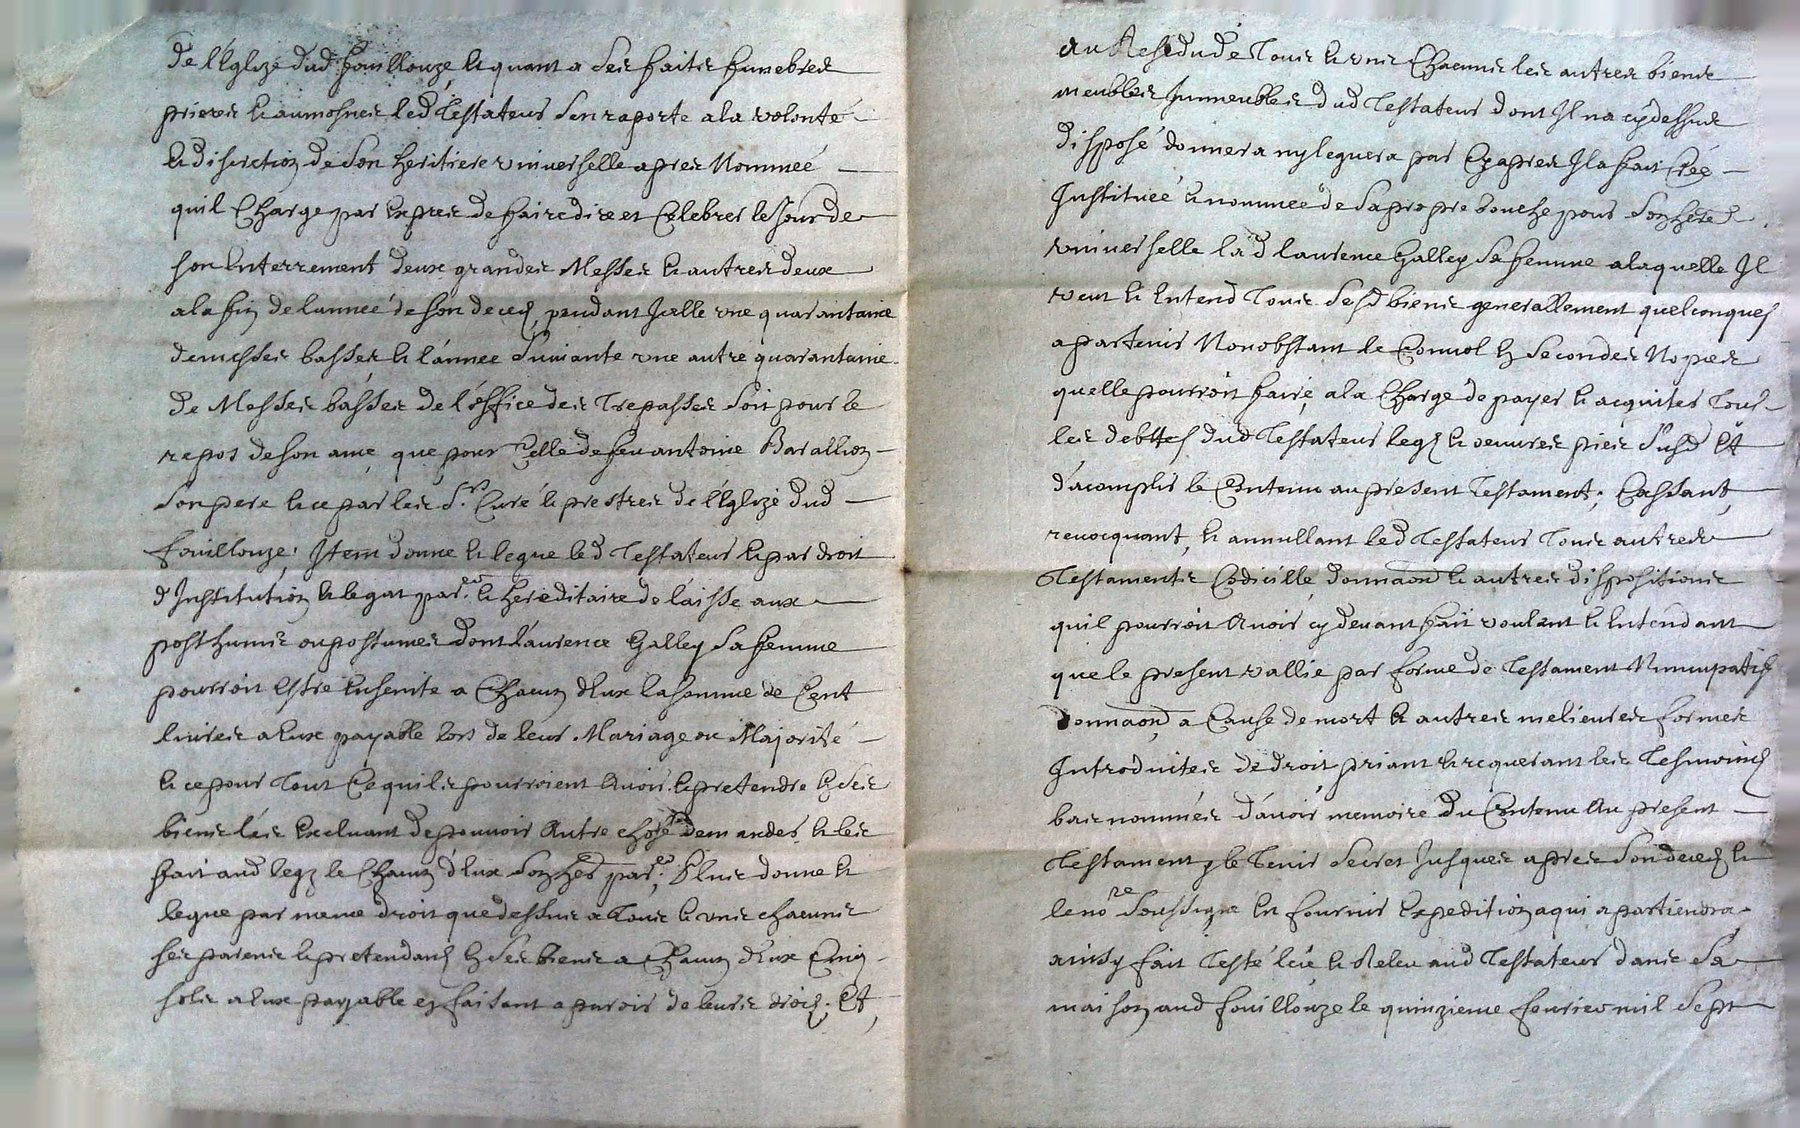 de l'Eglize dud fouillouze, et quant a ses faits funebres
prieres et aumosnes led Testateur s'en raporte a la volonté
et discretion de son heritiere universelle apres Nommeé
quil Charge par expres de faire dire et Celebrer le Jour de
son Enterrement deux grandes Messes et autres deux
a la fin de lanneé de son deced, pendant Jcelle une quarantaine
de messes basses, et lánnee suivante une autre quarantaine
de Messes basses de l'office des Trepasses soit pour le
repos de son ame, que pour Celle de feu antoine Barallion
son pere et ce par les Srs Curé et prestres de l'Eglize dud
fouillouze; Item donne et legue led Testateur et par droit
d'Institution et legat par.er et hereditaire delaisse aux
posthume ou postumes dont Laurence Galley sa femme
pourroit Estre Enseinte a Chacun d'Eux la somme de Cent
livres a Eux payable lors de leur Mariage ou Majorité
et ce pour Tout Ce quils pourroient Avoir et pretendre en ses
biens les Excluant de pouvoir Autre chose demander, et les
fait aud legz et Chacun d'Eux son her par.er; Plus donne et
legue par meme droit que dessus a Tous et uns chacuns
ses parens et pretendans en ses biens a Chacun d'Eux Cinq
sols a Eux payable en faisant aparoir de leurs droid; Et
Au Residu de Tous et uns Chacuns les autres biens
meubles Jmmeubles dud Testateur dont Jl na cydessus
disposé donnera ny leguera par Cy apres Jl a fait Créé
Jnstitueé et nommee de sa propre bouche pour son here
universelle lad laurence Galley sa femme a laquelle Jl
veut et Entend Tous sesd biens generallement quelconques
apartenir Nonobstant le Convol en secondes Nopces
quelle pourroit faire, a la Charge de payer et acquiter Tous
les debtes dud Testateur legz et oeuvres pies susd Et
d'acomplir le Contenu au present Testament; Cassant,
revocquant, et annullant led Testateur Tous autres
Testaments Codicille donnaōn et autres dispositions
quil pourroit Avoir cy devant fait voulant et Entendant
que le present vallie par forme de Testament Nuncupatif
donnaōn, a Cause de mort et autres melieures formes
Introduites de droit priant et requerant les Tesmoins
bas nommés d'avoir memoire du Contenu Au present
Testament, et le Tenir secret Jusques apres son deced et
le nore soussigné En fournir Expedition a qui apartiendra
ainsy fait Testé léu et Releu aud Testateur dans sa
maison aud fouillouze le quinzieme fevrier mil sept